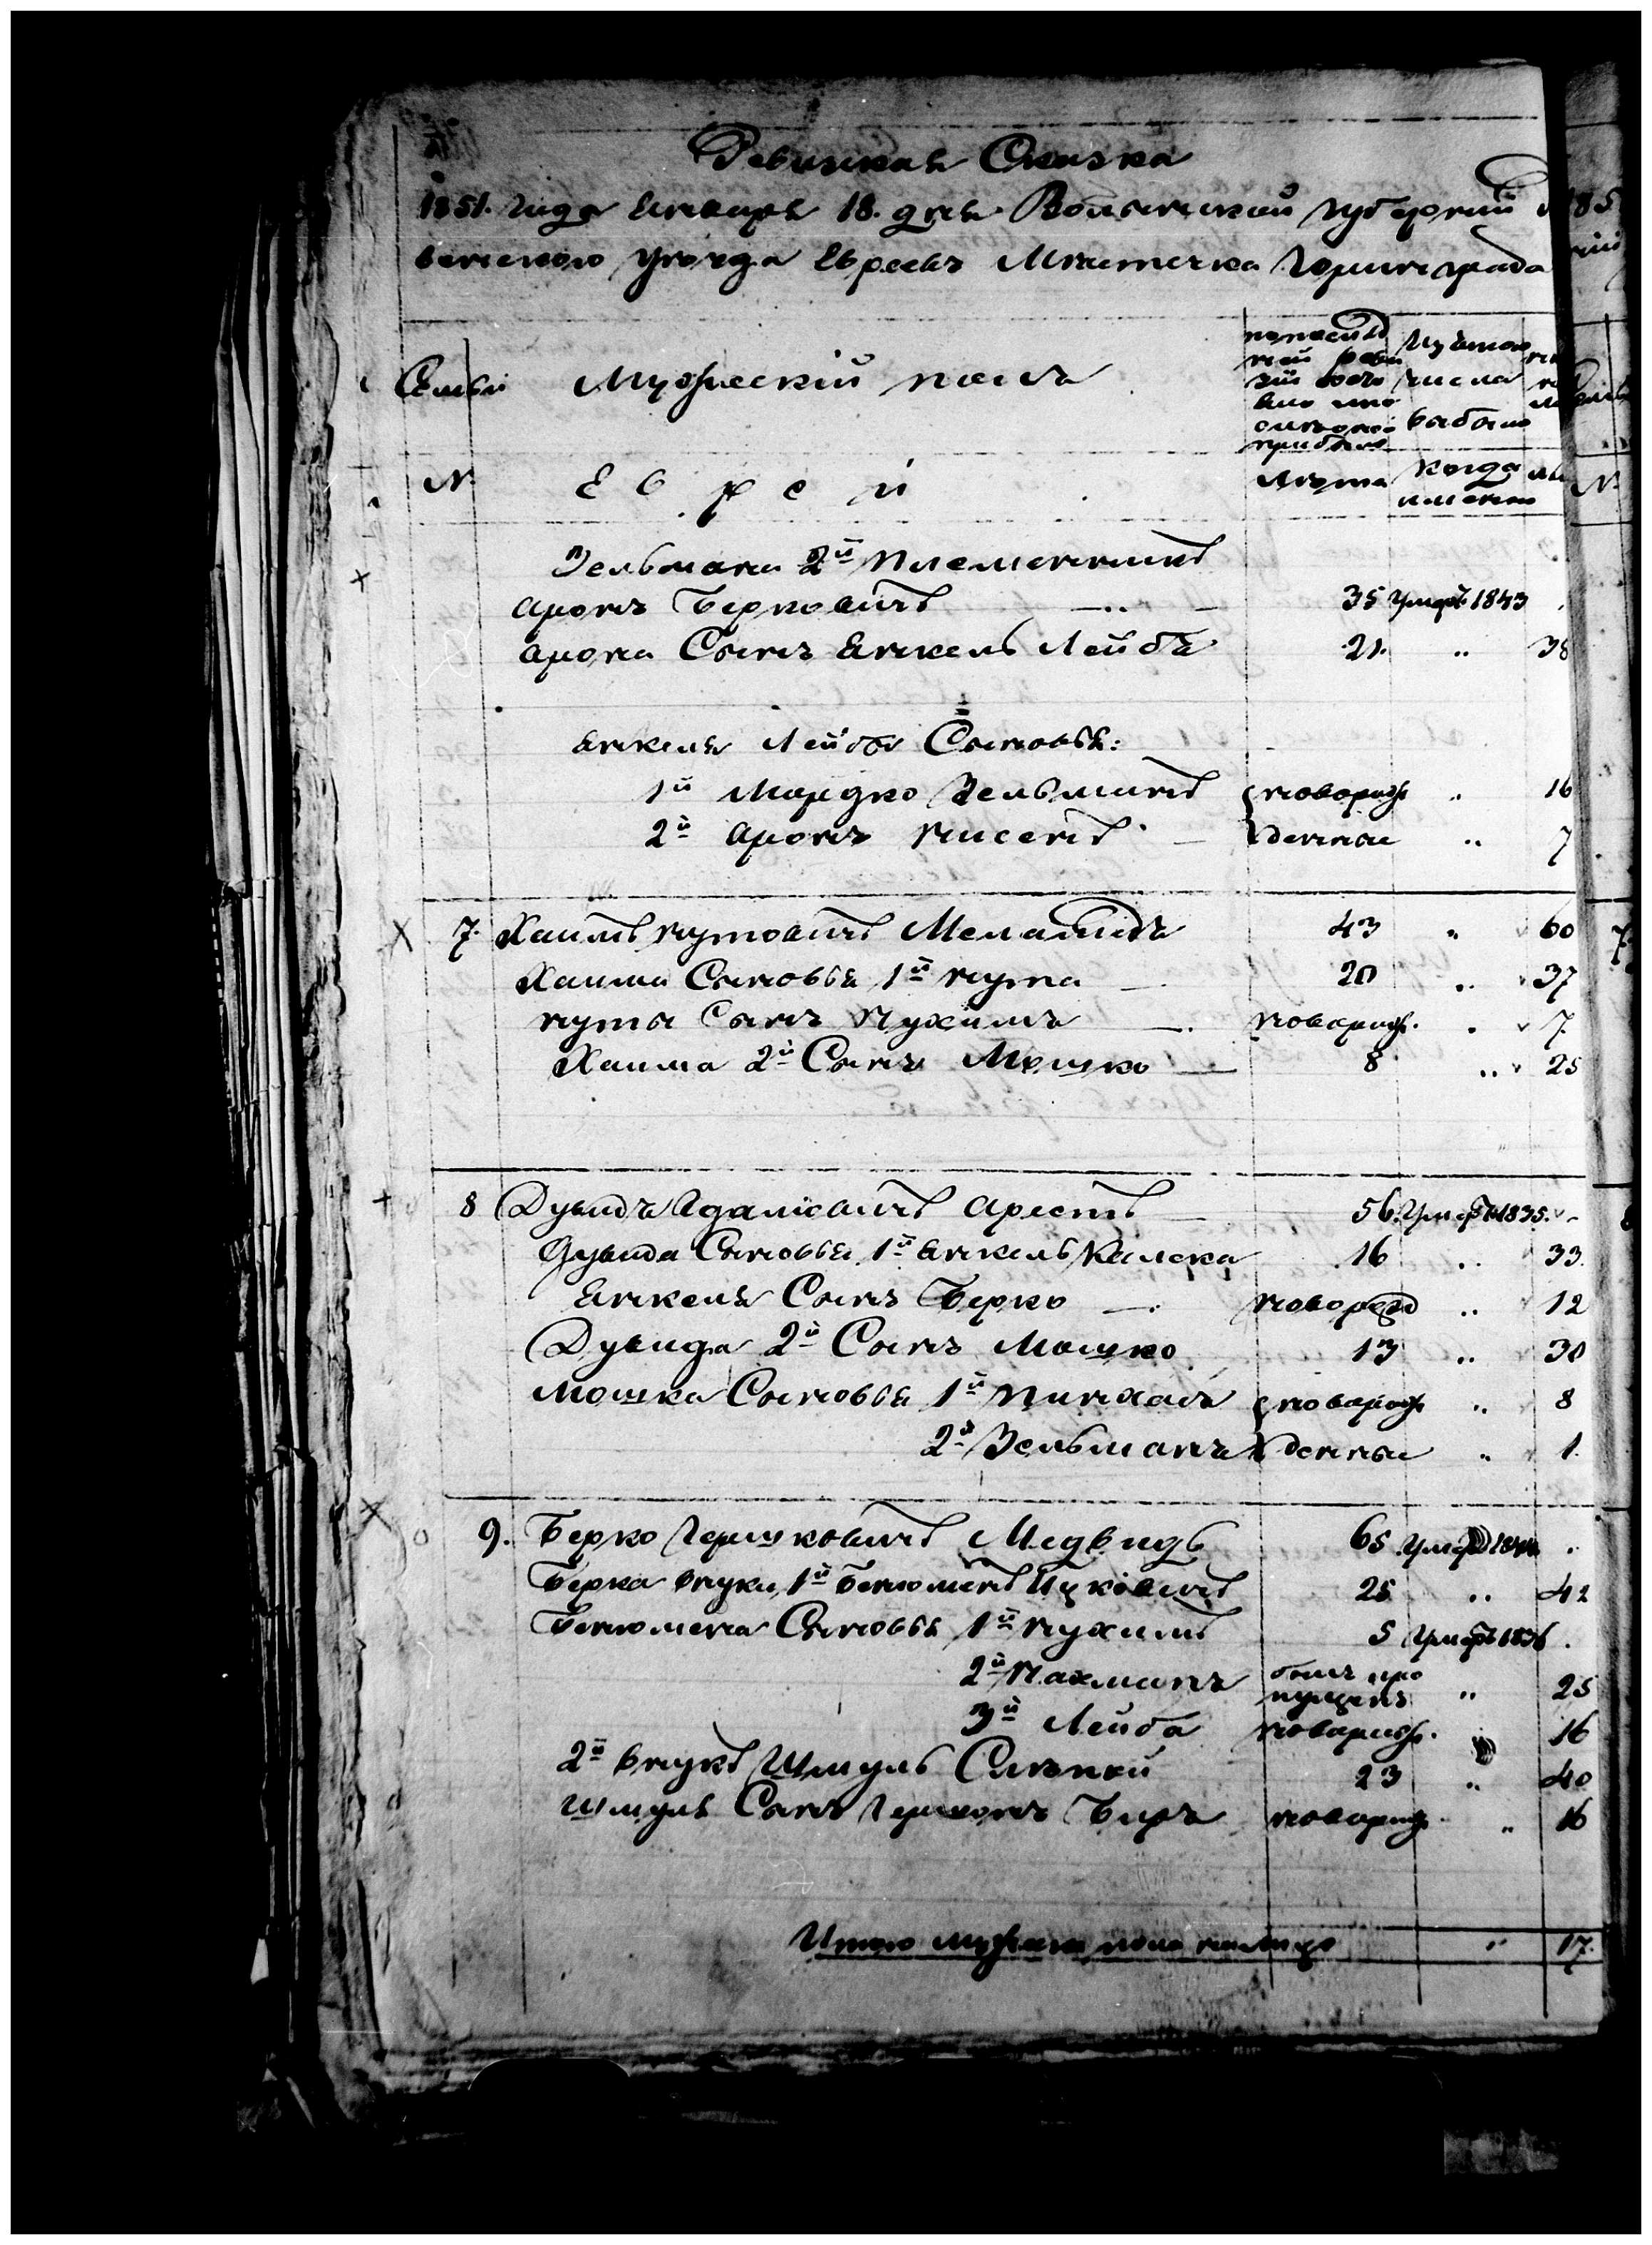 Ревизская Сказка
1851. года Января 18. дня Волынской губернии
венского уезда Евреевъ Местечка Горинграда
Семьи Мужескій полъ
по последней ревизіи состояло или после оной прибыло
Изъ того числа выбыло
№ Евреи Лета Когда именно
Зельмана 2й племянникъ
Аронъ Берковичъ 35 Умеръ 1843
Арона Сынъ Янкель Лейба 21. " 38
Янкеля Лейбы Сыновья:
1й Мордко Зельманъ новорож " 16
2й Аронъ Нисенъ денные " 7
7. Хаимъ Нутовичъ Меламедъ 43 " 60
Хаима Сыновья 1й Нута 20 " 37
Нуты Сынъ Нухимъ новорож. " 7
Хаима 2й Сынъ Мошко 8 " 25
8 Дувидъ Арестъ 56. Умеръ 1835.
Дувида Сыновья 1й Янкель 16 " 33.
Янкеля Сынъ Берко новорожд " 12
Дувида 2й Сынъ Мошко 13 " 30
Мошка Сыновья 1й Пинхасъ новорож " 8
2й Зельманъ денные " 1.
9. Берко Гершковичъ Медвидь 65 Умеръ
Берка внуки, 1й Беньоменъ Ицковичъ 25 " 42
Беньомена Сыновья 1й Нухимъ 5 Умеръ 1836.
2й Нахманъ былъ пропущенъ " 25
3й Лейба новорож. " 16
2й внукъ Шмуль Слепой 23 " 40
Шмуля Сынъ Гершонъ Беръ новорож " 16
Итого мужеска пола налицо " 17.